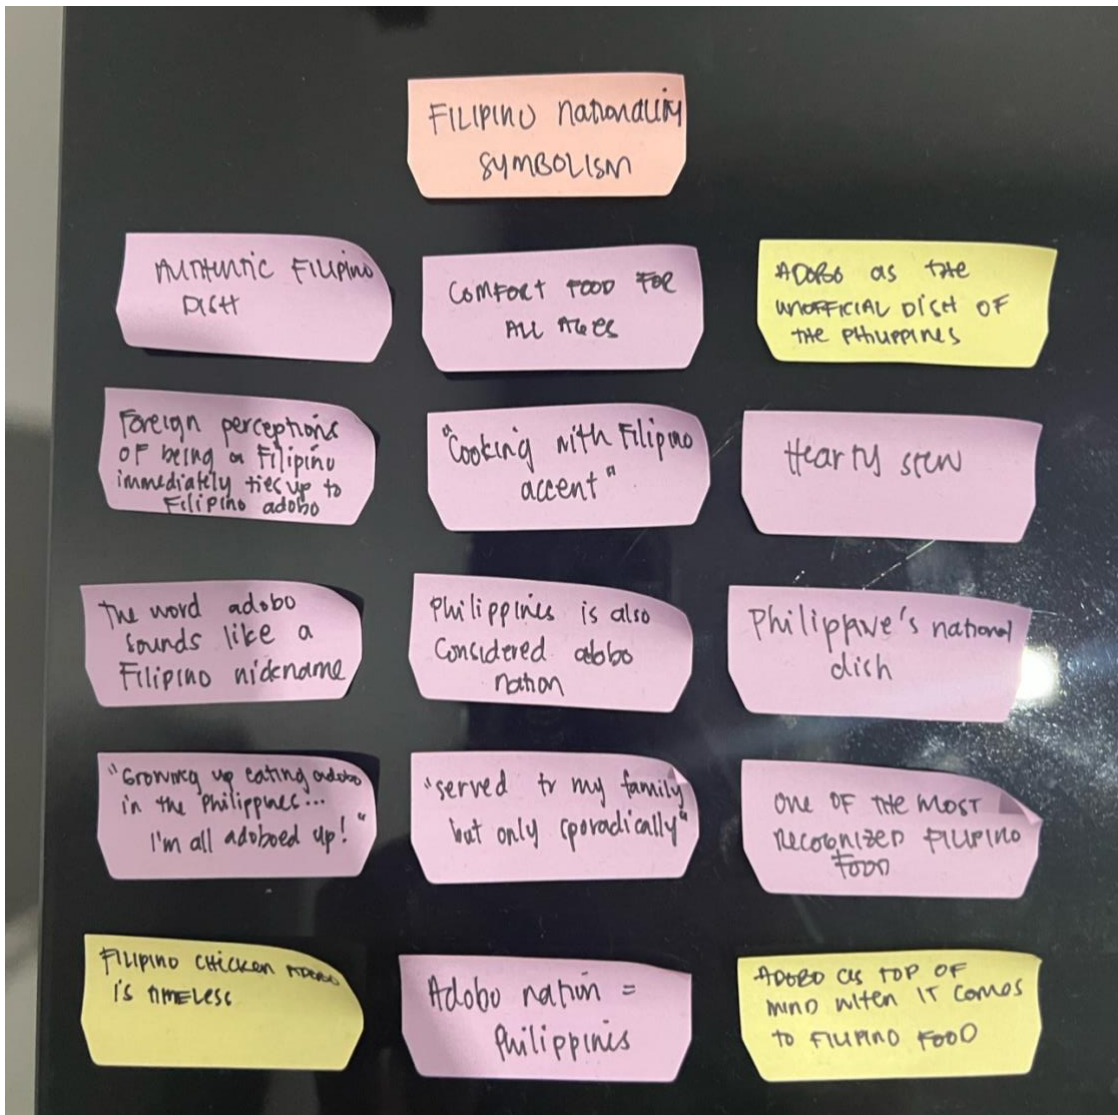 FILIPINO nationality
SYMBOLISM
Authentic Filipino
DISH
COMFORT FOOD FOR
ALL AGES
ADOBO as the
UNOFFICIAL DISH OF
THE PHILIPPINES
Foreign perceptions
OF being a Filipino
immediately ties up to
Filipino adobo
"Cooking with Filipino
accent"
Hearty stew
The word adobo
sounds like a
Filipino nickname
Philippines is also
Considered adobo
nation
national
dish
"Growing up eating adobo
in the Philippines...
I'm all adoboed up!"
"served to my family
but only sporadically"
ONE OF THE MOST
RECOGNIZED FILIPINO
FOOD
FILIPINO CHICKEN ADOBO
IS TIMELESS
Adobo nation =
Philippines
ADOBO as TOP OF
MIND WHEN IT COMES
to FILIPINO FOOD